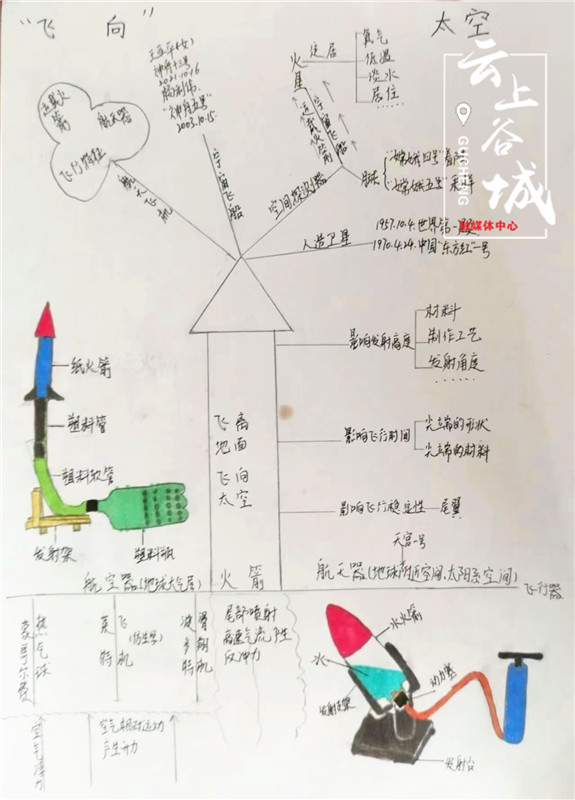 “飞 向”
太空
云上谷城
GUCHENG
融媒体中心
运载火箭
航天器
飞行特征
航天飞机
王亚平(女)
神舟十三号
2021.10.16
杨利伟
“神舟五号”
2003.10.15.
宇宙飞船
火星
定居
氧气
低温
淡水
居住
……
运载火箭
宇宙飞船
空间探测器
月球
“嫦娥四号”着陆
“嫦娥五号”采样
人造卫星
1957.10.4.世界第一颗
1970.4.24.中国“东方红”一号
纸火箭
塑料管
塑料软管
发射架
塑料瓶
飞离
地面
飞向
太空
影响发射高度
材料
制作工艺
发射角度
……
影响飞行时间
尖端的形状
尖端的材料
影响飞行稳定性
尾翼
天宫一号
航空器(地球大气层)
火箭
航天器(地球附近空间、太阳系空间)
飞行器
蒙哥尔费
热气球
莱特
飞机
(仿生学)
尾部喷射
高速气流产生
反冲力
空气浮力
空气相对运动
产生升力
水火箭
水
发射支架
动力塞
发射台